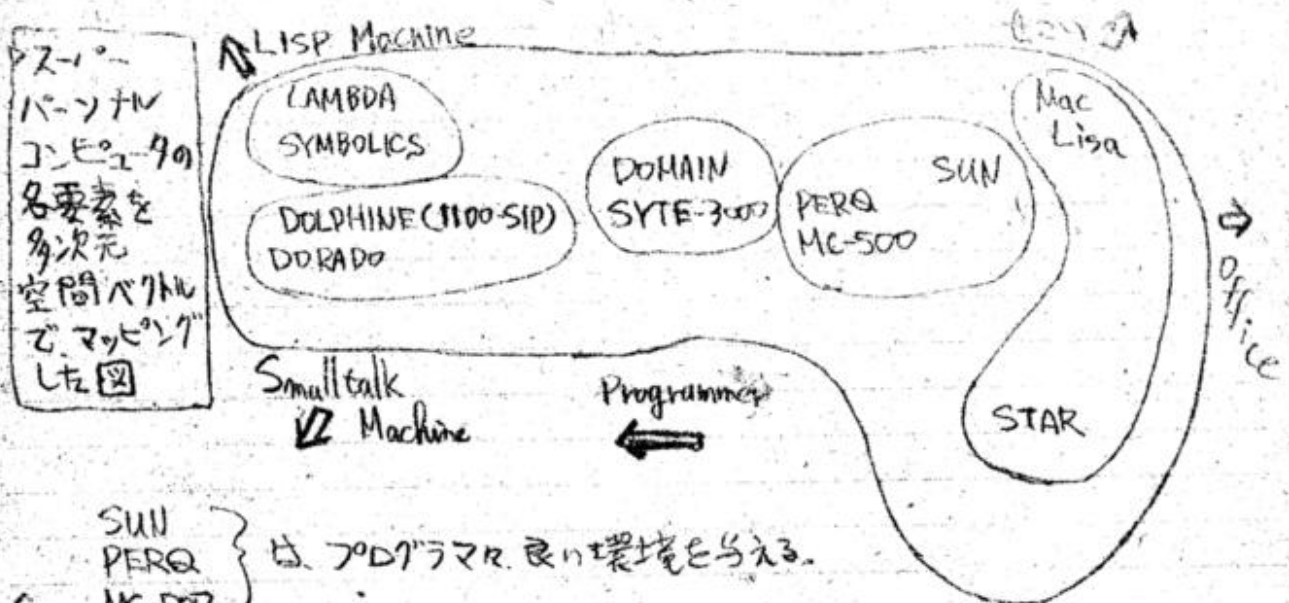 スーパー
パーソナル
コンピュータの
各要素を
多次元
空間ベクトル
で、マッピング
した図
LISP Machine
LAMBDA
SYMBOLICS
DOLPHINE(1100-SIP)
DORADO
DOMAIN
SYTE-3000
SUN
PERQ
MC-500
Mac
Lisa
STAR
Office
Smalltalk
Machine
Programmer
SUN
PERQ
は、プログラマに良い環境を与える。